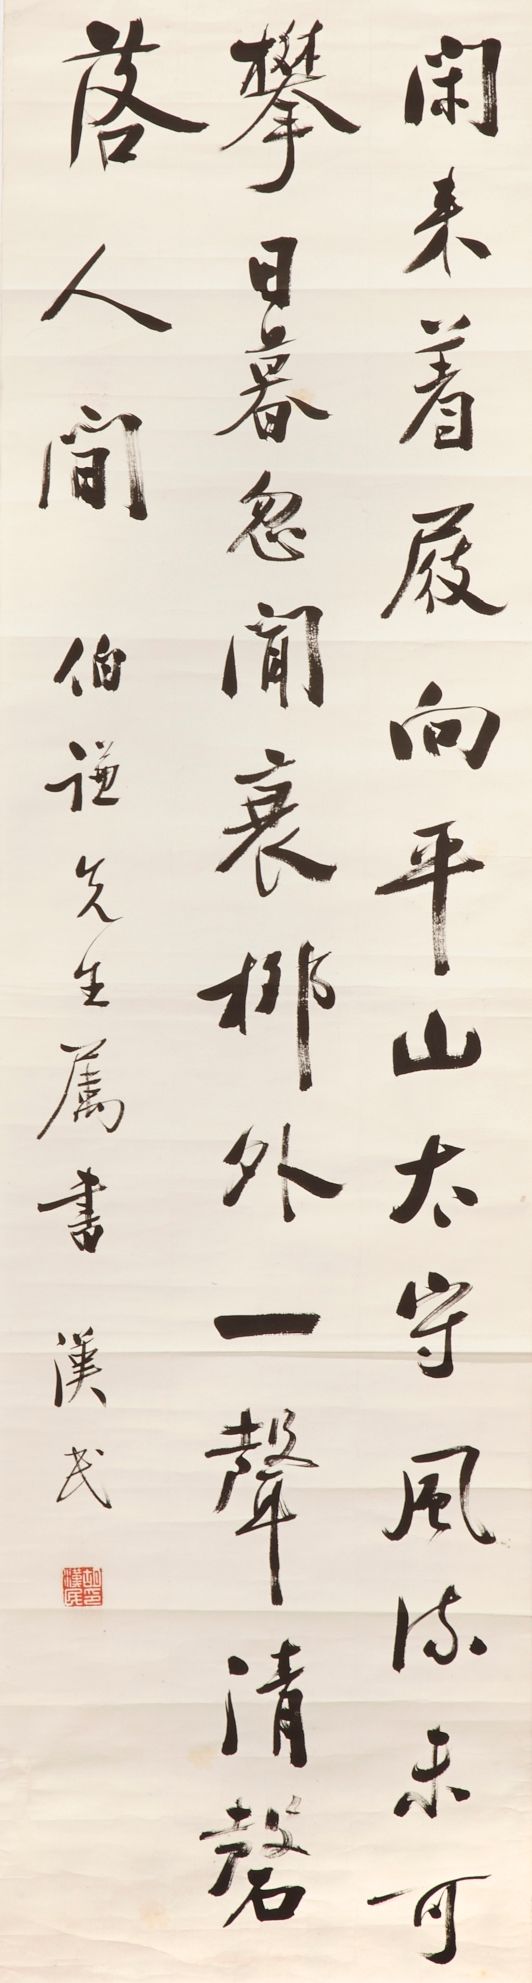 閑来着屐向平山太守風流未可
攀日暮忽聞衰柳外一聲清磬
落人間
伯謙先生屬書
漢民
胡漢民印